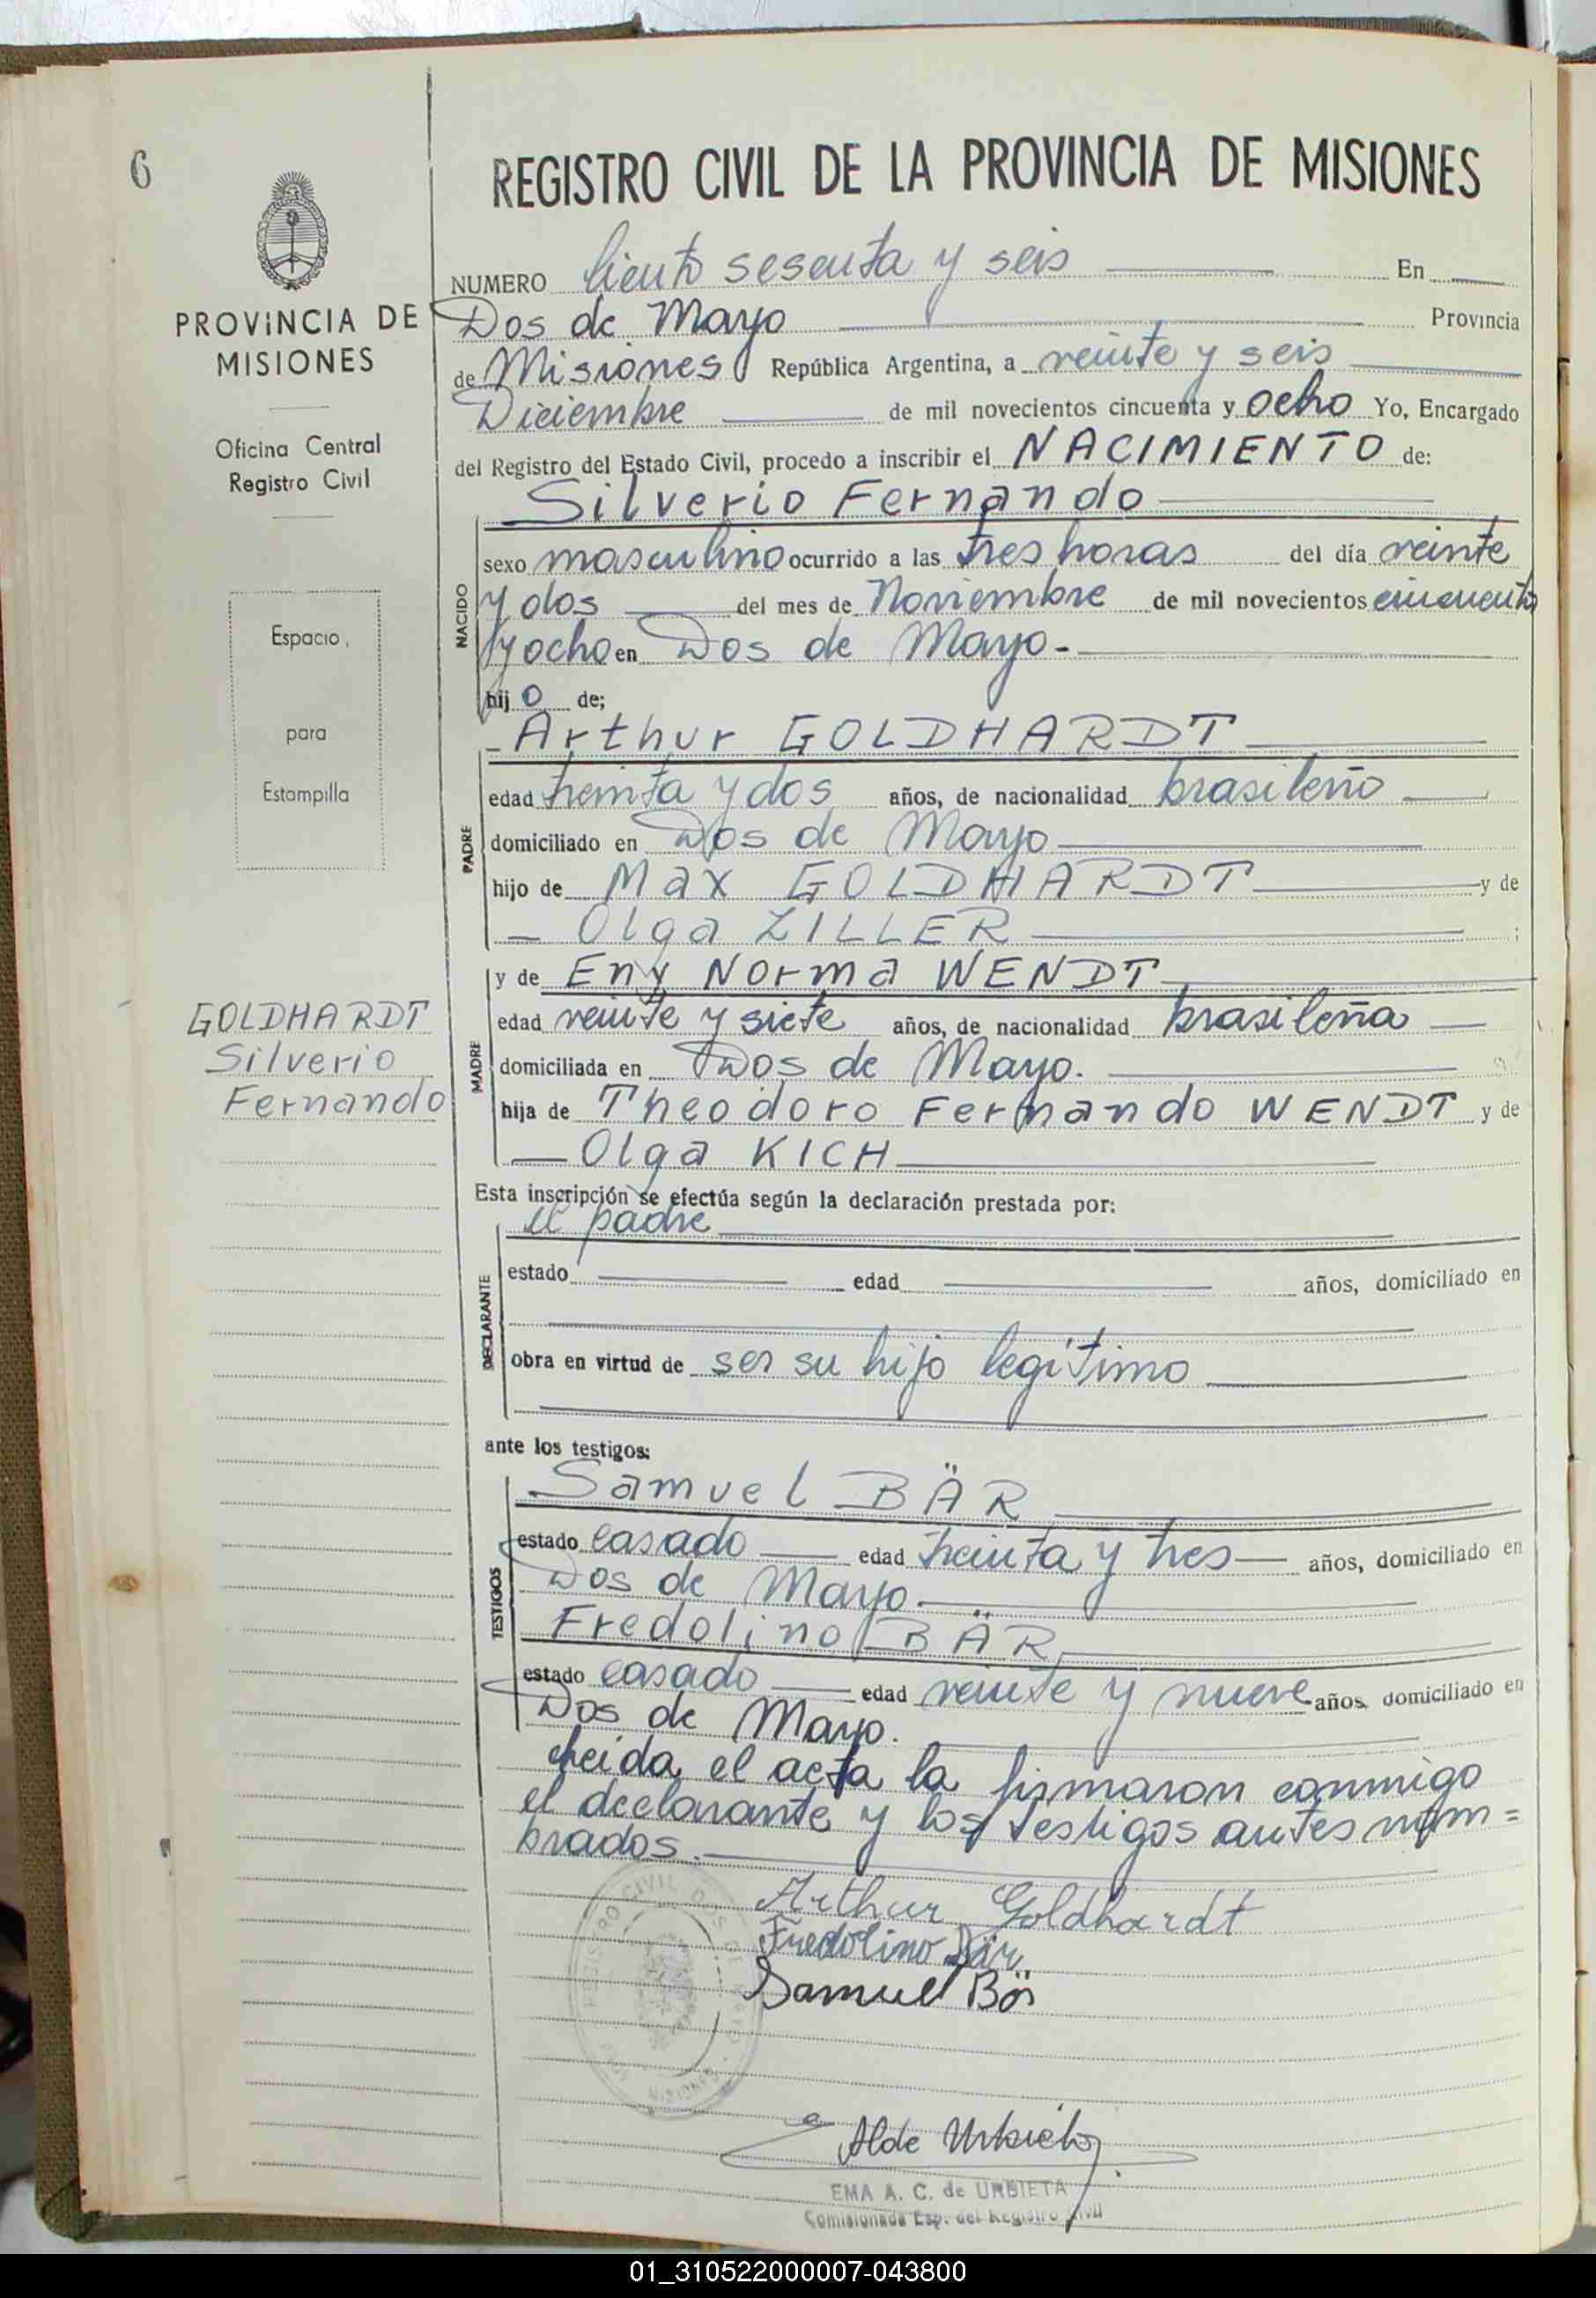 6
REGISTRO CIVIL DE LA PROVINCIA DE MISIONES
PROVINCIA DE
MISIONES
Oficina Central
Registro Civil
Espacio
para
Estampilla
GOLDHARDT
Silverio
Fernando
NUMERO Ciento sesenta y seis En
Dos de Mayo Provincia
de Misiones República Argentina, a veinte y seis
Diciembre de mil novecientos cincuenta y ocho Yo, Encargado
del Registro del Estado Civil, procedo a inscribir el NACIMIENTO de:
Silverio Fernando
NACIDO
sexo masculino ocurrido a las tres horas del día veinte
y dos del mes de Noviembre de mil novecientos cincuenta
y ocho en Dos de Mayo.-
hijo de;
- Arthur GOLDHARDT
PADRE
edad treinta y dos años, de nacionalidad brasileño
domiciliado en Dos de Mayo
hijo de Max GOLDHARDT y de
- Olga ZILLER ;
y de Eny Norma WENDT
MADRE
edad veinte y siete años, de nacionalidad brasileña
domiciliada en Dos de Mayo.
hija de Theodoro Fernando WENDT y de
- Olga KICH
Esta inscripción se efectúa según la declaración prestada por:
el padre
DECLARANTE
estado edad años, domiciliado en
obra en virtud de ser su hijo legítimo
ante los testigos:
Samuel BÄR
TESTIGOS
estado casado edad treinta y tres años, domiciliado en
Dos de Mayo.
Fredolino BÄR
estado casado edad veinte y nueve años, domiciliado en
Dos de Mayo.
Leida el acta la firmaron conmigo
el declarante y los testigos antes nom=
brados.
Arthur Goldhardt
Fredolino Bär
Samuel Bär
REGISTRO CIVIL DOS DE MAYO
MISIONES
EMA A. C. de URBIETA
Comisionada Esp. del Registro Civil
01_310522000007-043800